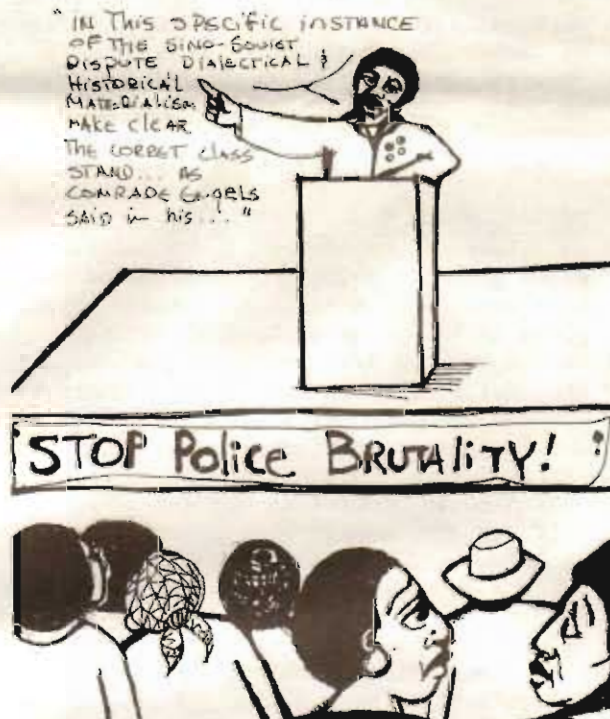 "IN THIS SPECIFIC INSTANCE
OF THE SINO-SOVIET
DISPUTE DIALECTICAL &
HISTORICAL
MATERIALISM
MAKE CLEAR
THE CORRET CLASS
STAND... AS
COMRADE ENGELS
SAID in his..."
STOP Police BRUTALITY!